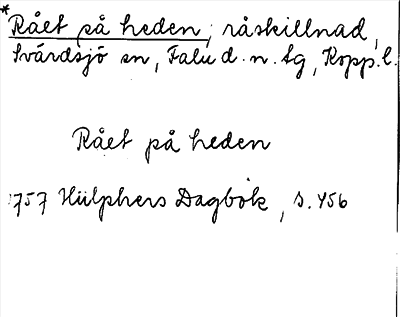 *Rået på heden, råskillnad,
Svärdsjö sn, Falu d. n. tg, Kopp. l.
Rået på heden
1757 Hülphers Dagbok, s. 456